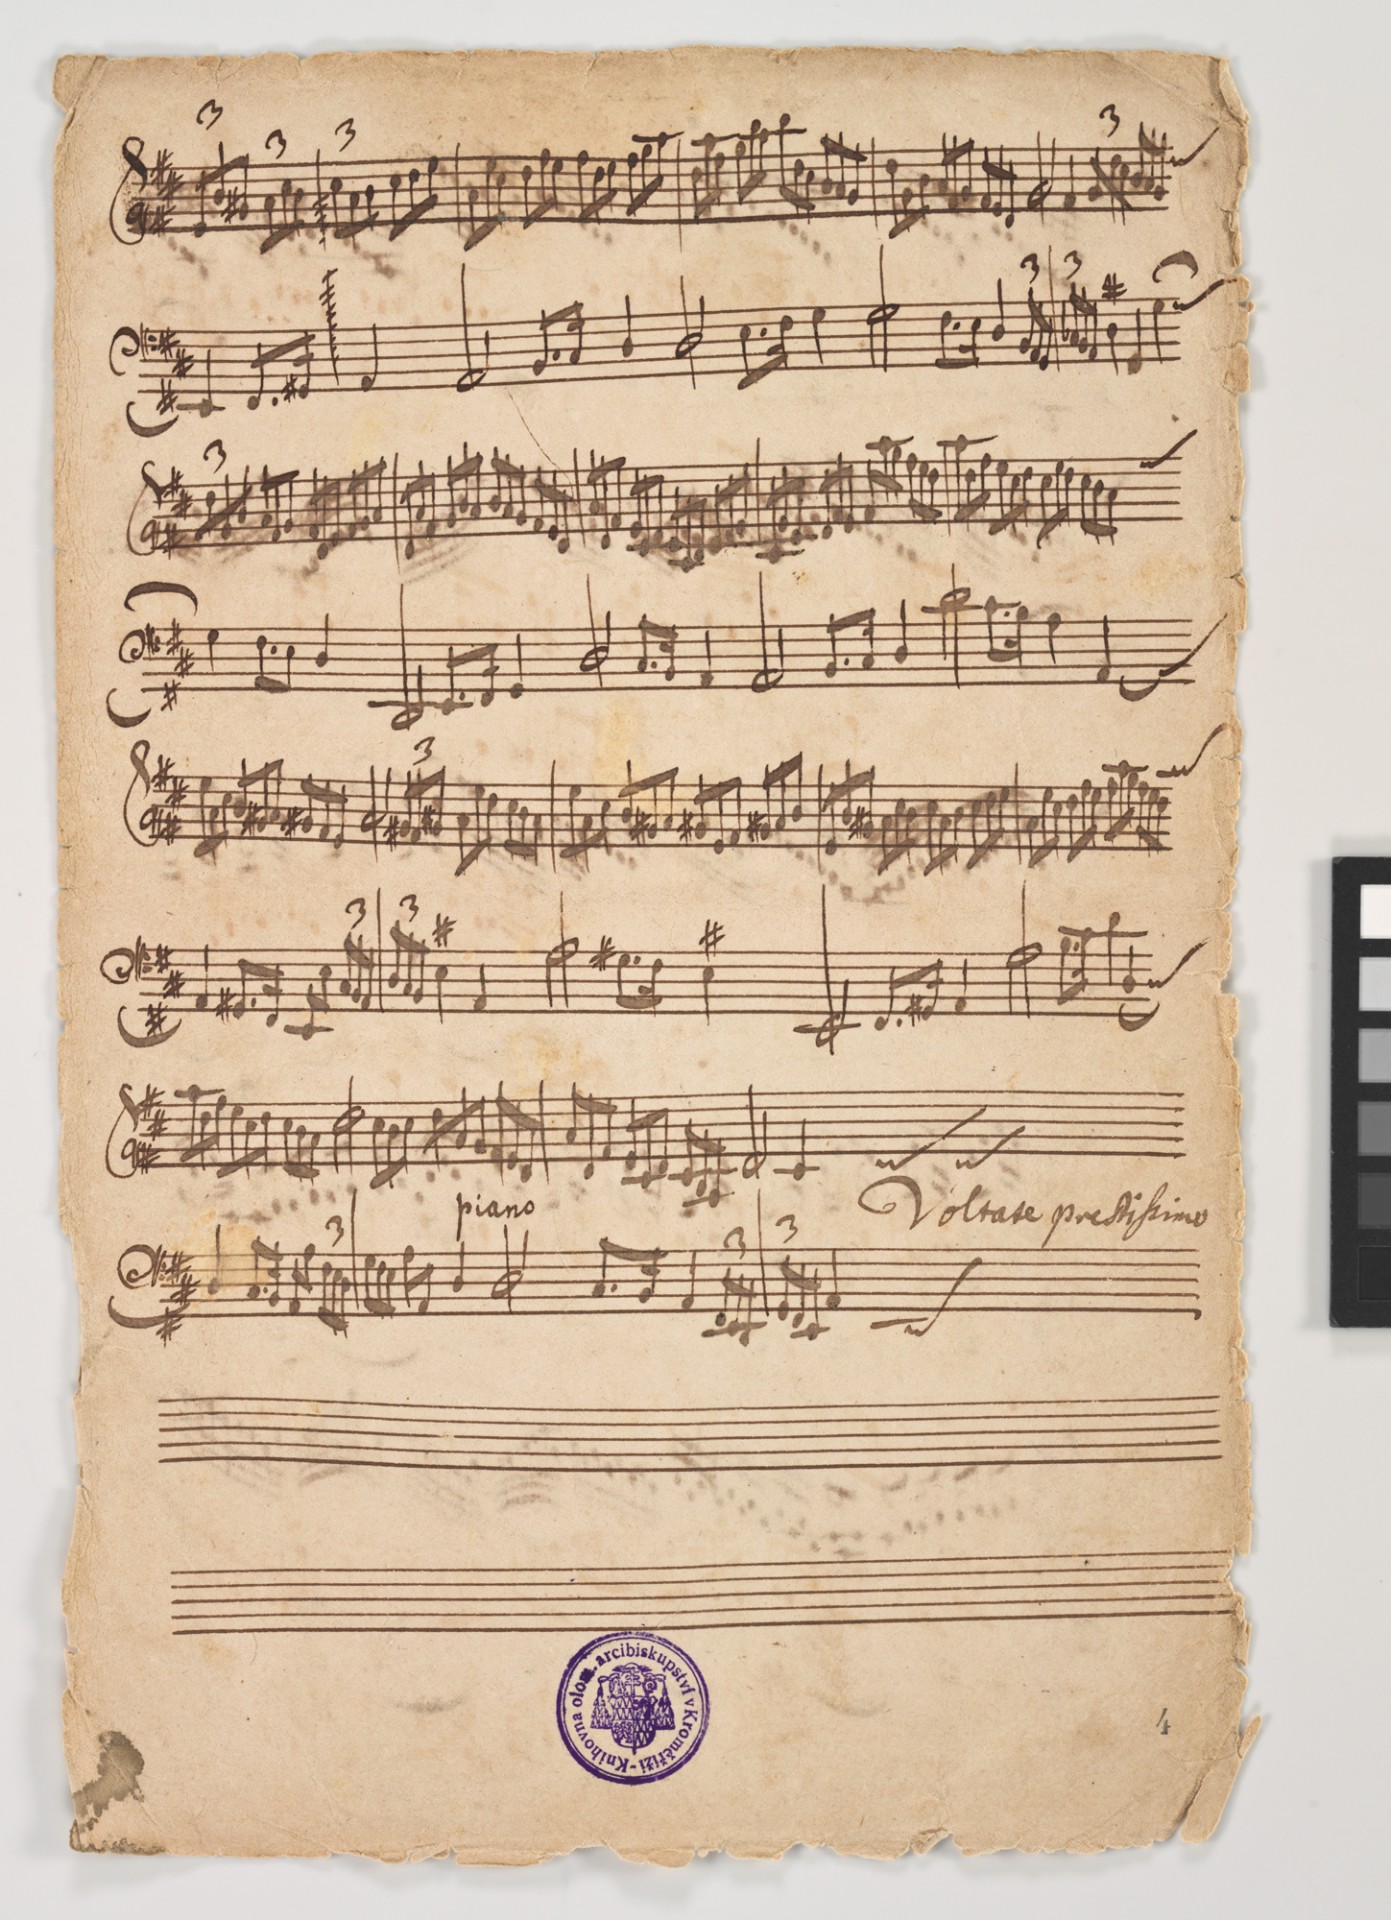 3 3 3 3
3 3
3
3
3 3
piano
Voltate prestissimo
3 3
Knihovna olom. arcibiskupství v Kroměříži -
4